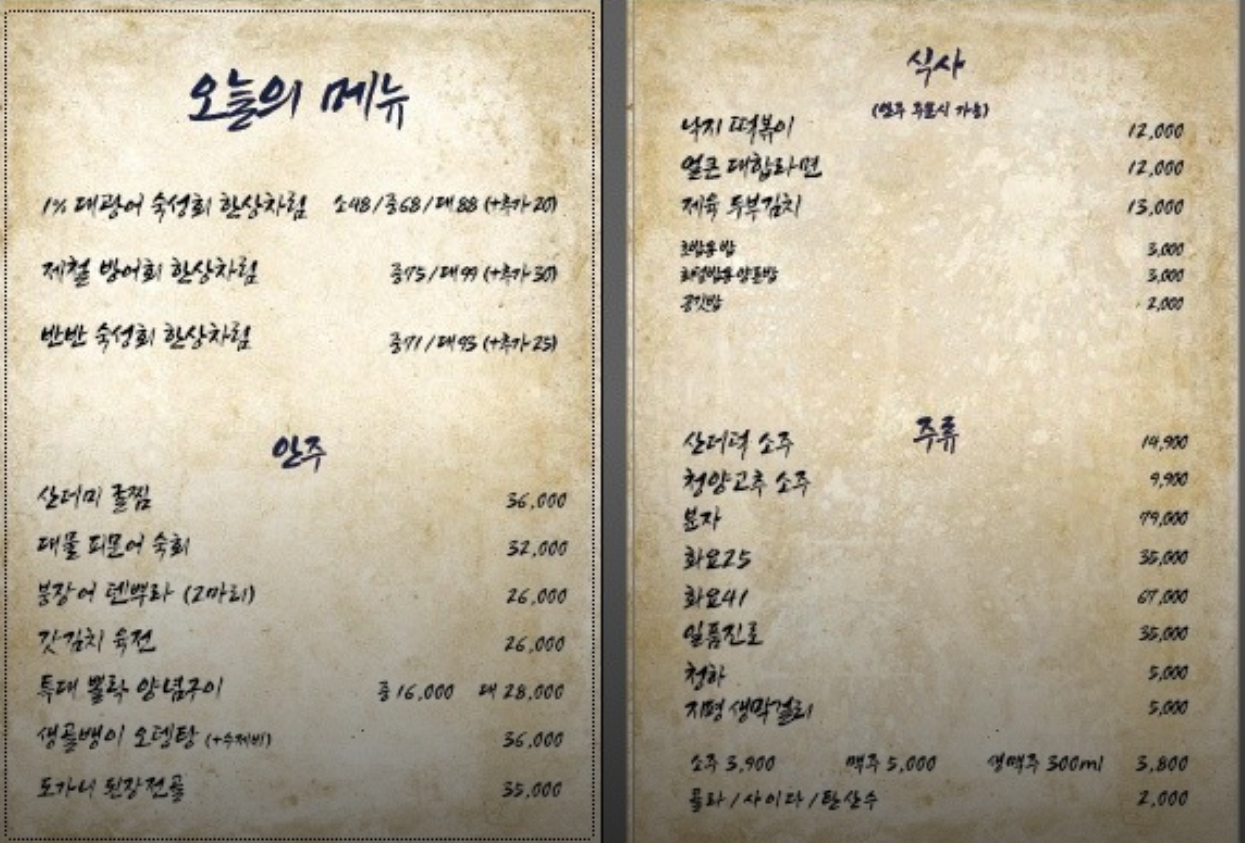 오늘의 메뉴
1% 대광어 숙성회 한상차림 소48/중68/대88 (+추가20)
제철 방어회 한상차림 중75/대99 (+추가30)
반반 숙성회 한상차림 중71/대95 (+추가25)
안주
산더미 굴찜 36,000
대물 피문어 숙회 32,000
붕장어 텐뿌라 (2마리) 26,000
갓김치 육전 26,000
특대 뽈락 양념구이 중 16,000 대 28,000
생골뱅이 오뎅탕 (+수제비) 36,000
도가니 된장전골 35,000
식사
(안주 주문시 가능)
낙지 떡볶이 12,000
얼큰 대합라면 12,000
제육 두부김치 13,000
초밥용 밥 3,000
회덮밥용 양푼밥 3,000
공깃밥 2,000
주류
산더덕 소주 14,900
청양고추 소주 9,900
문자 79,000
화요25 35,000
화요41 67,000
일품진로 35,000
청하 5,000
지평 생막걸리 5,000
소주 3,900 맥주 5,000 생맥주 300ml 3,800
콜라/사이다/탄산수 2,000